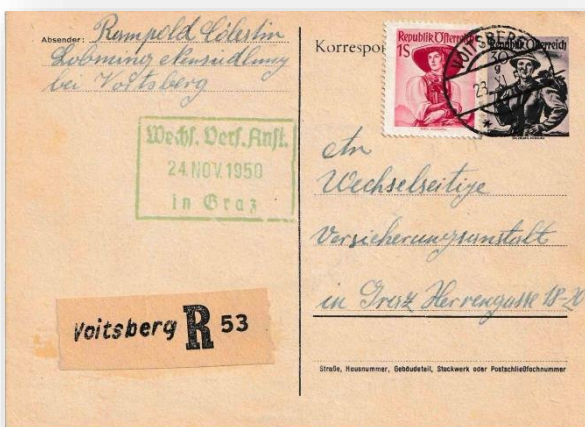 Absender: Rumpold Cölestin
Lobming Neusiedlung
bei Voitsberg
Wechs. Vers. Anst.
24. NOV. 1950
in Graz
Voitsberg R 53
Korrespon
Republik Österreich
1S
VOITSBERG
Republik Österreich
30
An
Wechselseitige
Versicherungsanstalt
in Graz Herrengasse 18-20
Straße, Hausnummer, Gebäudeteil, Stockwerk oder Postschließfachnummer